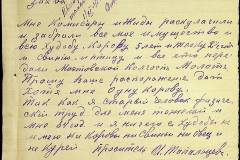 Мне комисары и Жиды раскулачили
и забрали все мое имущество и
всю худобу Корову 5 лет и
Свинью и птицу и все ето пере
дали Колхоз Молот
Прошу Ваше распоряжение Дать
хотя мне одну корову.
Так как я старый человек физиче
ский труд для меня тяжолый и
мне от худобы не
и мне ни коровы ни свиньи ни овец и
не курей Проситель И.